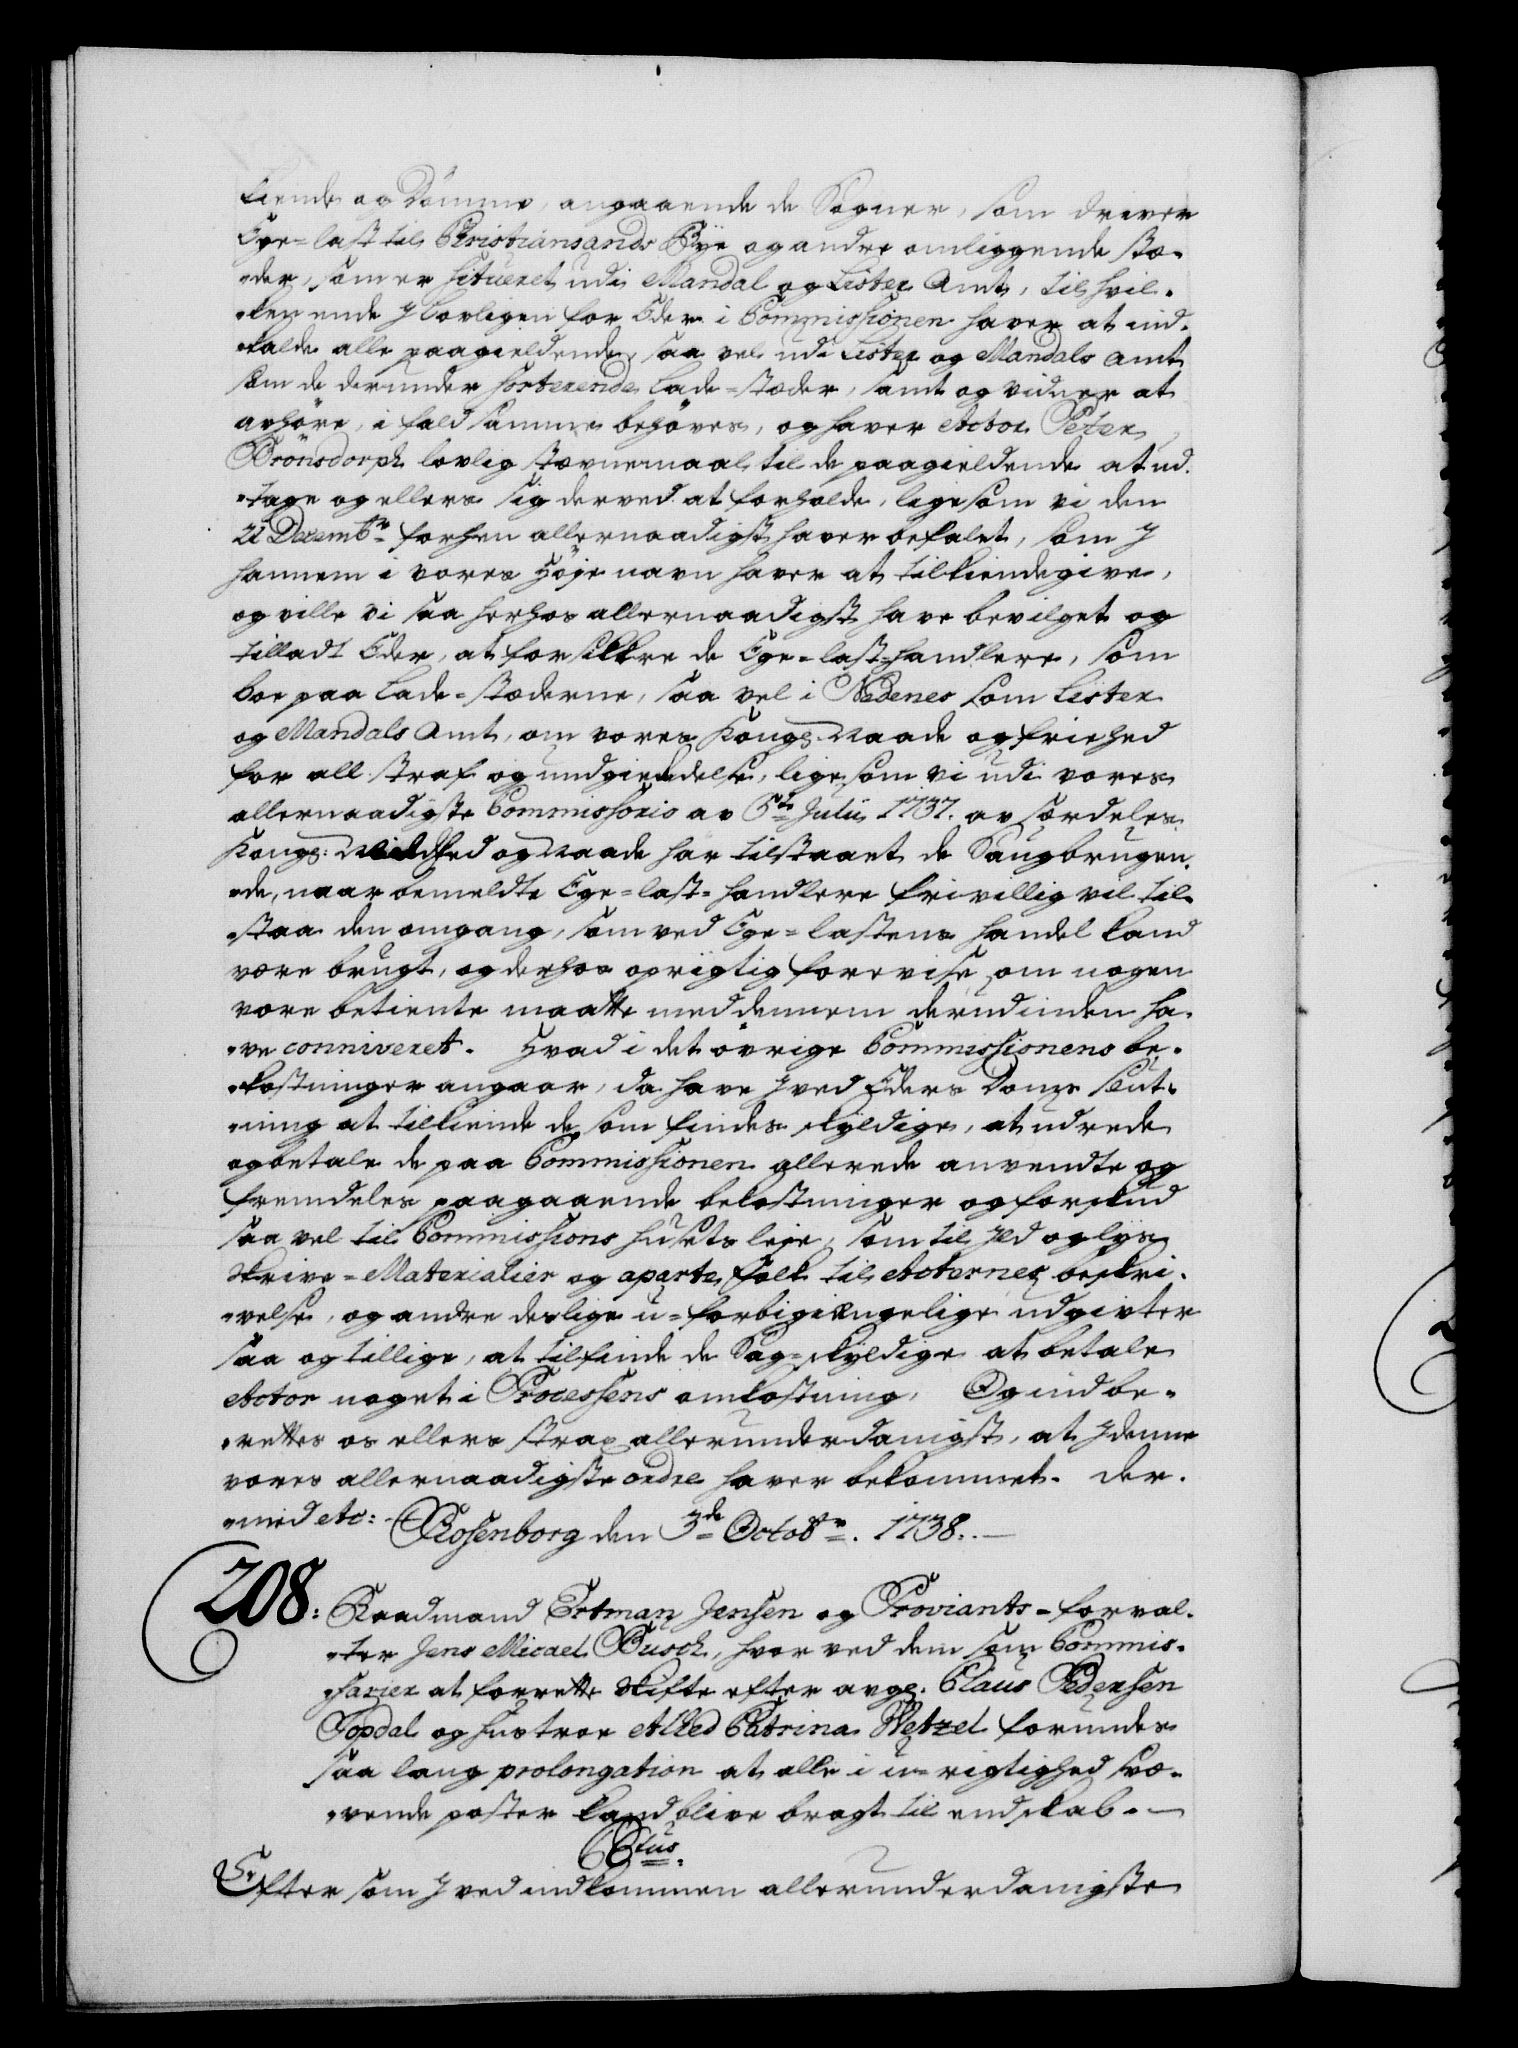 kiende og Dömme, angaaende de Sogner, som driver
Ege-last til Christiansands Bye og andre omliggende stæ-
der, som er situeret udi Mandal og Lister Amt, til hvil-
ken ende I lovligen for Eder i Commissionen haver at ind-
kalde alle paagieldende, saa vel udi Lister og Mandals amt
som de derunder sorterende Lade-stæder, samt og vidner at
avhöre, i fald samme behöves, og haver Actor Peter
Brönsdorph lovlig stævnemaal til de paagieldende at ud-
tage og ellers sig derved at forholde, ligesom vi den
21 Decembr: forhen allernaadigst haver befalet, som I
hannem i vores Höje navn haver at tilkiendegive,
og ville vi saa herhos allernaadigst have bevilget og
tilladt Eder, at forsikkre de Ege-last-handlere, som
boe paa Lade-stæderne, saa vel i Nedenes som Lister
og Mandals Amt, om vores Kongs. Naade og friehed
for all straf og undgieldelse, ligesom vi udi vores
allernaadigste Commissorio av 5te Julii 1737. av særdeles
Kongs: Mildhed og Naade har tilstaaet de Saugbrugen-
de, naar bemeldte Ege-last-handlere frivillig vil til-
staa den omgang, som ved Ege-lastens handel kand
være brugt, og derhos oprigtig forevise, om nogen
vore betiente maatte med dennem derudinden ha-
ve conniveret. Hvad i det övrige Commissionens be-
kostninger angaar, da have I ved Eders Doms slut-
ning at tilkiende de som findes skyldige, at udrede
og betale de paa Commissionen allerede anvendte og
fremdeles paagaaende bekostninger og forskud
saa vel til Commissions husets leje, som til Ild og lys
Skrive-Materialier og aparte folk til Acternes beskri-
velse, og andre deslige u-forbigiængelige udgivter
saa og tillige, at tilfinde de Sag-skyldige at betale
Actor noget i Processens omkostning. Og indbe-
rettes os ellers strax allerunderdanigst, at I denne
vores allernaadigste ordre haver bekommet. Der-
med etc: Rosenborg den 3de Octobr. 1738.
208: Raadmand Tetman Jensen og Proviants-forval-
ter Jens Micael Busch, hvor ved dem som Commis-
sarier at forrette Skifte efter avgs. Claus Pedersen
Topdal og hustroe Alhed Catrina Wetzel forundes
saa lang prolongation at alle i u-rigtighed svæ-
vende poster kand blive bragt til endskab.
C6tus.
Efter som I ved indkommen allerunderdanigste